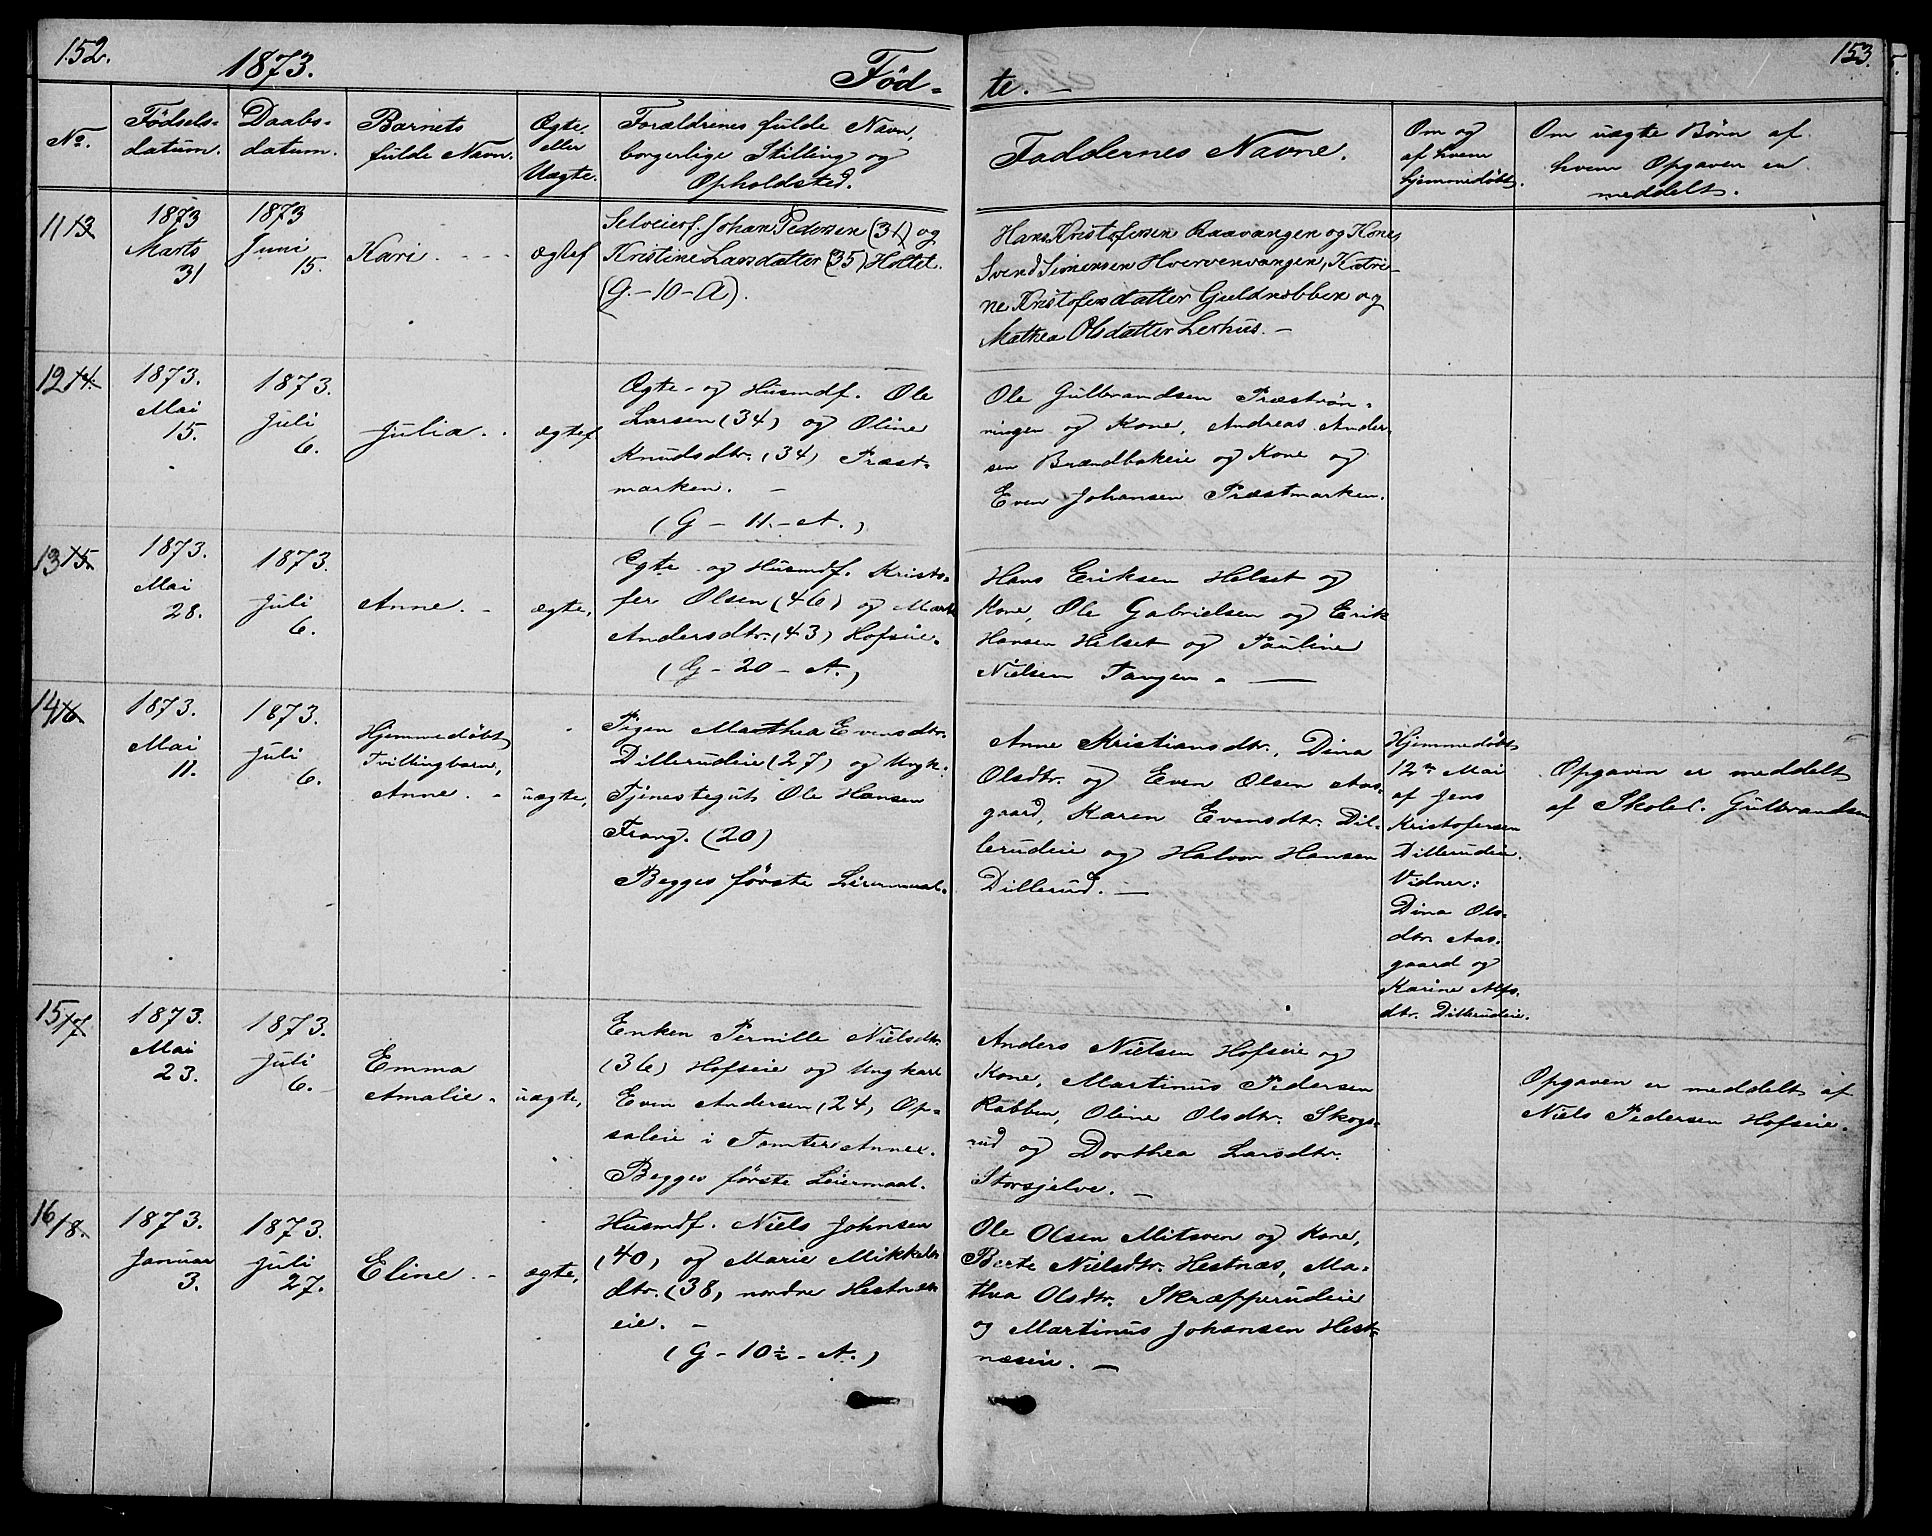 152.
1873.
Fød-
te. -
153.
No.
Födsels-
datum.
Daabs-
datum.
Barnets
fulde Navn.
Ægte
eller
Uægte.
Forældrenes fulde Navn,
borgerlige Stilling og
Opholdsted.
Faddernes Navne.
Om og
af hvem
hjemmedøbt.
Om uægte Børn af
hvem Opgaven er
meddelt.
11 13
1873
Marts
31
1873
Juni
15.
Kari.
ægtef
Selveierf. Johan Pedersen (34) og
Kristine Larsdatter (35) Holtet.
(G.-10-A).
Hans Kristofersen Raavangen og Kone,
Svend Simensen Hvervenvangen, Katri-
ne Kristofersdatter Guldnobben og
Mathea Olsdatter Lerhus. -
12 14.
1873.
Mai
15.
1873.
Juli
6.
Julia.
ægtef
Ægte- og Husmdf. Ole
Larsen (34) og Oline
Knudsdtr. (34) Præst-
marken. -
(G - 11. - A.)
Ole Gulbrandsen Præstrøn-
ningen og Kone, Andreas Ander-
sen Brændbakeie og Kone og
Even Johansen Præstmarken.
13 15.
1873.
Mai
28.
1873.
Juli
6.
Anne. -
ægte,
Egte- og Husmdf. Kristo-
fer Olsen (46) og Marte
Andersdtr. (43) Hofseie.
(G - 20 - A.)
Hans Eriksen Helset og
Kone, Ole Gabrielsen og Erik
Hansen Helset og Pauline
Nielsen Tangen. -
14 16
1873.
Mai
11.
1873.
Juli
6.
Hjemmedøbt
Tvillingbarn,
Anne. -
uægte,
Pigen Marthea Evensdtr.
Dillerudeie (27) og Ungk.
Tjenestegut Ole Hansen
Frang. (20)
Begges første Leiermaal.
Anne Kristiansdtr., Dina
Olsdtr. og Even Olsen Aas-
gaard, Karen Evensdtr. Dil-
lerudeie og Halvor Hansen
Dillerud. -
Hjemmedøbt
12te Mai
af Jens
Kristofersen
Dillerudeie.
Vidner:
Dina Ols-
dtr. Aas-
gaard og
Karine Alfs-
dtr. Dillerudeie.
Opgaven er meddelt
af Skolel. Gulbrandsen
15 17.
1873.
Mai
23.
1873.
Juli
6. -
Emma
Amalie.
uægte,
Enken Pernille Nielsdtr.
(36) Hofseie og Ungkarl
Even Andersen (24) Op-
saleie i Tomter Annex.
Begges første Leiermaal.
Anders Nielsen Hofseie og
Kone, Martinus Pedersen
Rabben, Oline Olsdtr. Skogs-
rud og Dorthea Larsdtr.
Storsjelve. -
Opgaven er meddelt af
Niels Pedersen Hofseie.
16 18.
1873.
Januar
3.
1873.
Juli
27.
Eline. -
ægte,
Husmdf. Niels Johnsen
(40) og Marie Mikkels-
dtr. (38) nordre Hestnæs
eie. -
(G - 10½ - A.)
Ole Olsen Mitsven og Kone,
Berte Nielsdtr. Hestnæs, Ma-
thea Olsdtr. Skræpperudeie
og Martinus Johansen Hest-
næseie. -